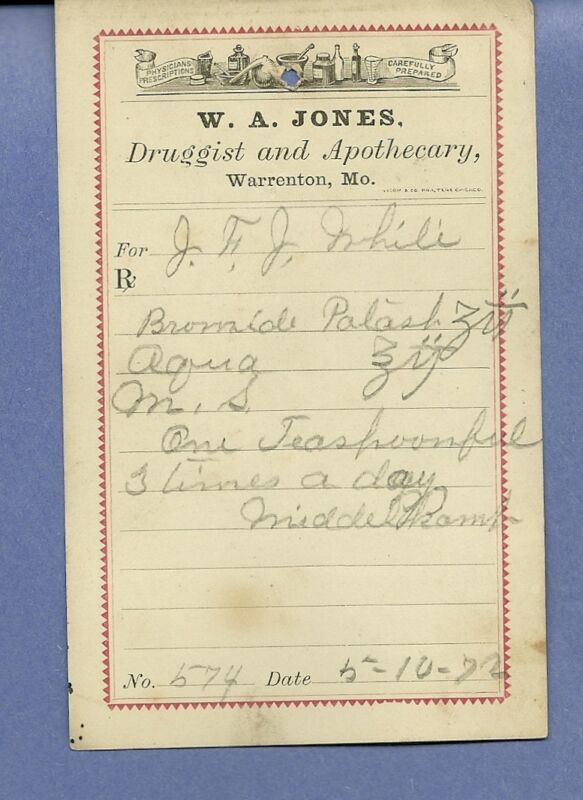 PHYSICIANS PRESCRIPTIONS
CAREFULLY PREPARED
W. A. JONES,
Druggist and Apothecary,
Warrenton, Mo.
For J. F. J. White
℞
Bromide Potash ʒij
Aqua ℥ij
M. S.
One Teaspoonful
3 times a day
Middelkamp
No. 574 Date 5-10-72